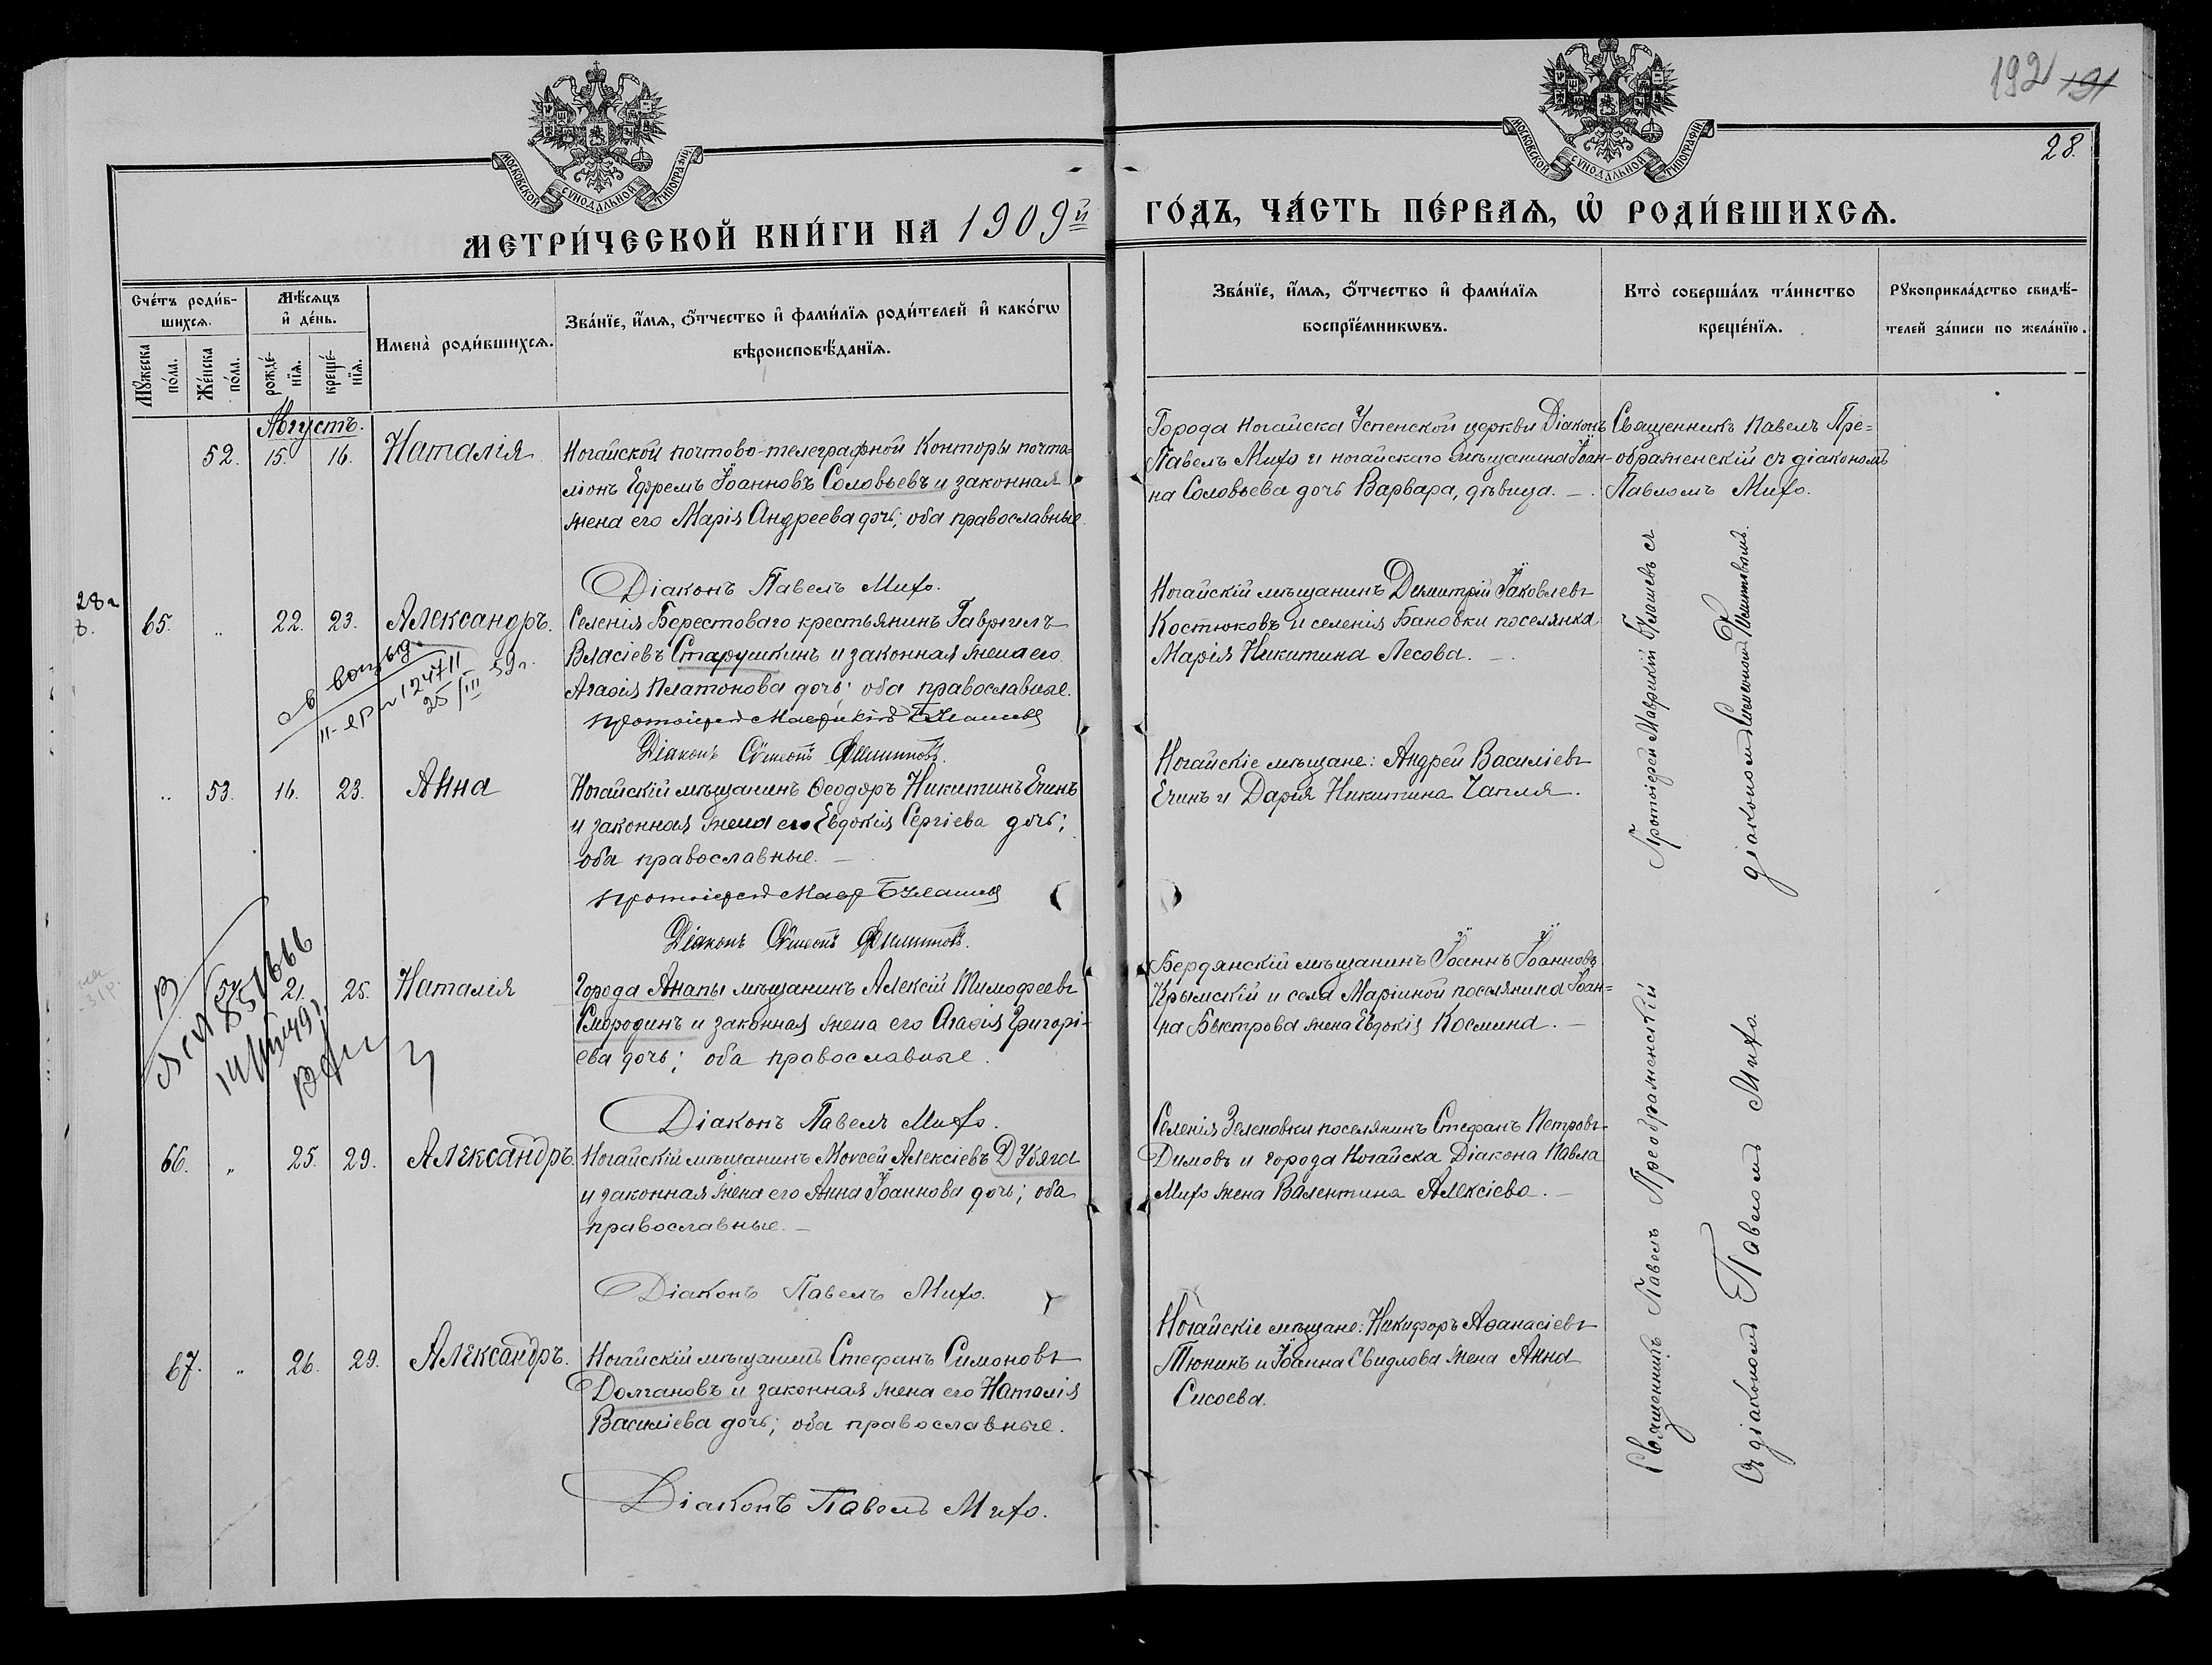 192 191
28.
МОСКОВСКОЙ СѴНОДАЛЬНОЙ ТИПОГРАФІИ
МОСКОВСКОЙ СѴНОДАЛЬНОЙ ТИПОГРАФІИ
МЕТРИ́ЧЕСКОЙ КНИ́ГИ НА 1909й
ГО́ДЪ, ЧА́СТЬ ПЕ́РВАѦ, Ѡ҆ РОДИ́ВШИХСѦ.
Сче́тъ роди́в-
шихсѧ.
Мꙋ́жеска по́ла.
Же́нска по́ла.
Мѣ́сѧцъ
и҆ де́нь.
рожде́-
нїѧ.
креще́-
нїѧ.
Имена̀ роди́вшихсѧ.
Зва́нїе, и҆́мѧ, ѻ҆́тчество и҆ фами́лїѧ роди́телей и҆ како́гѡ
вѣроисповѣ́данїѧ.
Зва́нїе, и҆́мѧ, ѻ҆́тчество и҆ фами́лїѧ
воспрїе́мникѡвъ.
Кто̀ соверша́лъ та́инство
креще́нїѧ.
Рꙋкоприкла́дство свидѣ́-
телей за́писи по жела́нїю.
Августъ.
52. 15. 16. Наталія
Ногайской почтово-телеграфной Конторы почта-
ліонъ Ефремъ Іоанновъ Соловьевъ и законная
жена его Марія Андреева дочь; оба православные.
Діаконъ Павелъ Михо.
Города Ногайска Успенской церкви Діаконъ
Павелъ Михо и ногайскаго мѣщанина Іоан-
на Соловьева дочь Варвара, дѣвица. —
Священникъ Павелъ Пре=
ображенскій съ діакономъ
Павломъ Михо.
65. „ 22. 23. Александръ.
Селенія Берестоваго крестьянинъ Гавріилъ
Власіевъ Старушкинъ и законная жена его
Агаѳія Платонова дочь; оба православные.
Протоіерей Маврикій Булашевъ
Діаконъ Сѵмеонъ Филиповъ.
Ногайскій мѣщанинъ Димитрій Іаковлевъ
Костюковъ и селенія Бановки поселянка
Марія Никитина Лесова. —
12471
25/III 59 г.
„ 53. 16. 23. Анна
Ногайскій мѣщанинъ Ѳеодоръ Никитинъ Ечинъ
и законная жена его Евдокія Сергіева дочь;
оба православные. —
Протоіерей Мавр Булашевъ
Діаконъ Сѵмеонъ Филиповъ.
Ногайскіе мѣщане: Андрей Василіевъ
Ечинъ и Дарія Никитина Чапля.
Протоіерей Маврикій Булашевъ съ
діакономъ Симеономъ Филиповымъ.
54. 21. 25. Наталія
Города Анапы мѣщанинъ Алексій Тимофеевъ
Смородинъ и законная жена его Агаѳія Григорі-
ева дочь; оба православные.
Діаконъ Павелъ Михо.
Бердянскій мѣщанинъ Іоаннъ Іоанновъ
Крымскій и села Маріиной поселянина Іоан=
на Быстрова жена Евдокія Космина. —
66. „ 25. 29. Александръ.
Ногайскій мѣщанинъ Моѵсей Алексіевъ Дубяга
и законная жена его Анна Іоаннова дочь; оба
православные. —
Діаконъ Павелъ Михо.
Селенія Зеленовки поселянинъ Стефанъ Петровъ
Димовъ и города Ногайска Діакона Павла
Михо жена Валентина Алексіева. —
67. „ 26. 29. Александръ.
Ногайскій мѣщанинъ Стефанъ Симоновъ
Долгановъ и законная жена его Наталія
Василіева дочь; оба православные.
Діаконъ Павелъ Михо.
Ногайскіе мѣщане: Никифоръ Аѳанасіевъ
Тюнинъ и Іоанна Свидлова жена Анна
Сисоева.
Священникъ Павелъ Преображенскій
съ діакономъ Павломъ Михо.